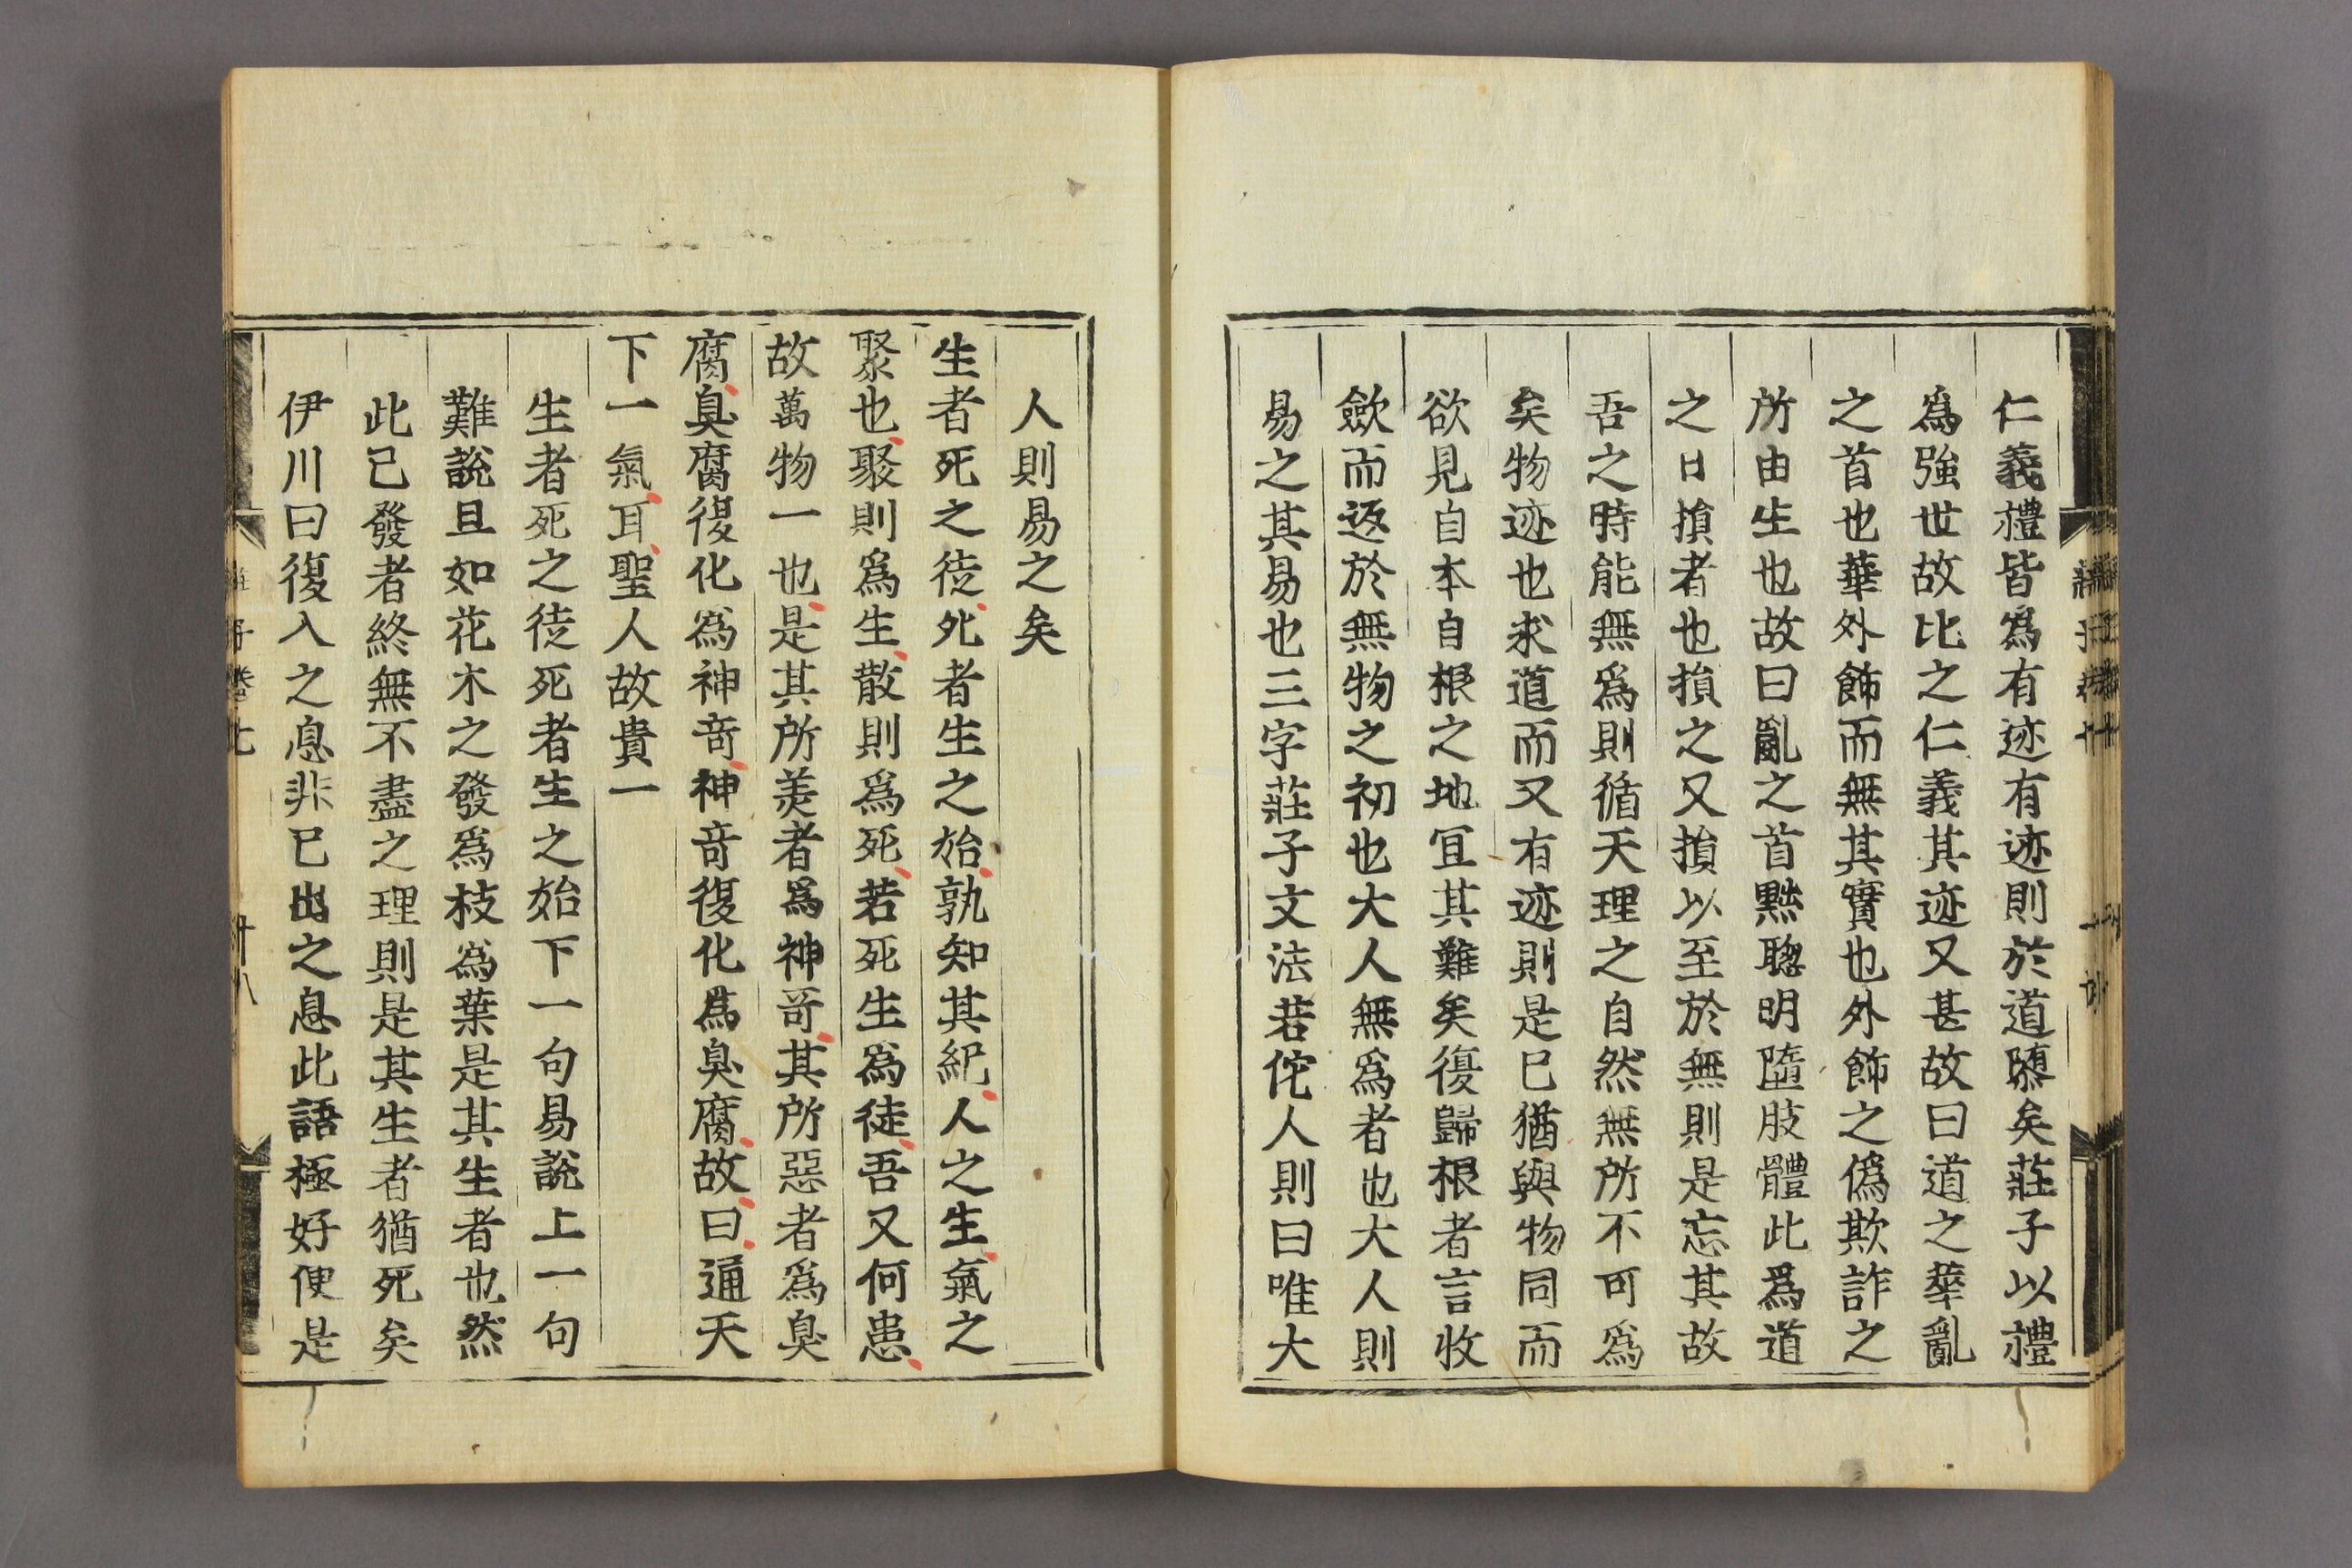 仁義禮皆爲有迹有迹則於道隳矣莊子以禮
爲強世故比之仁義其迹又甚故曰道之華亂
之首也華外飾而無其實也外飾之僞欺詐之
所由生也故曰亂之首黜聦明墮肢體此爲道
之日損者也損之又損以至於無則是忘其故
吾之時能無爲則循天理之自然無所不可爲
矣物迹也求道而又有迹則是已猶與物同而
欲見自本自根之地冝其難矣復歸根者言收
歛而返於無物之初也大人無爲者也大人則
易之其易也三字莊子文法若佗人則曰唯大
人則易之矣
生者死之徒死者生之始孰知其紀人之生氣之
聚也聚則爲生散則爲死若死生爲徒吾又何患
故萬物一也是其所羙者爲神竒其所惡者爲臭
腐臭腐復化爲神竒神竒復化爲臭腐故曰通天
下一氣耳聖人故貴一
生者死之徒死者生之始下一句易說上一句
難說且如花木之發爲枝爲葉是其生者也然
此已發者終無不盡之理則是其生者猶死矣
伊川曰復入之息非已出之息此語極好便是